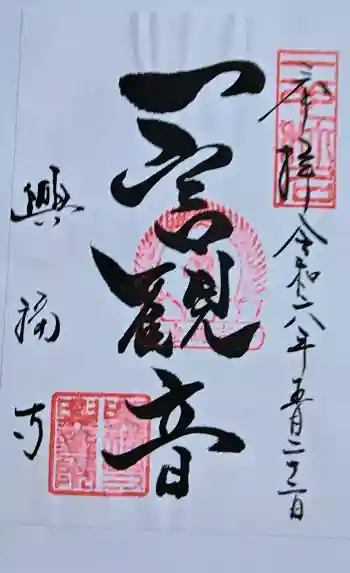 奉拝 令和八年五月二十二日
一言観音
興福寺